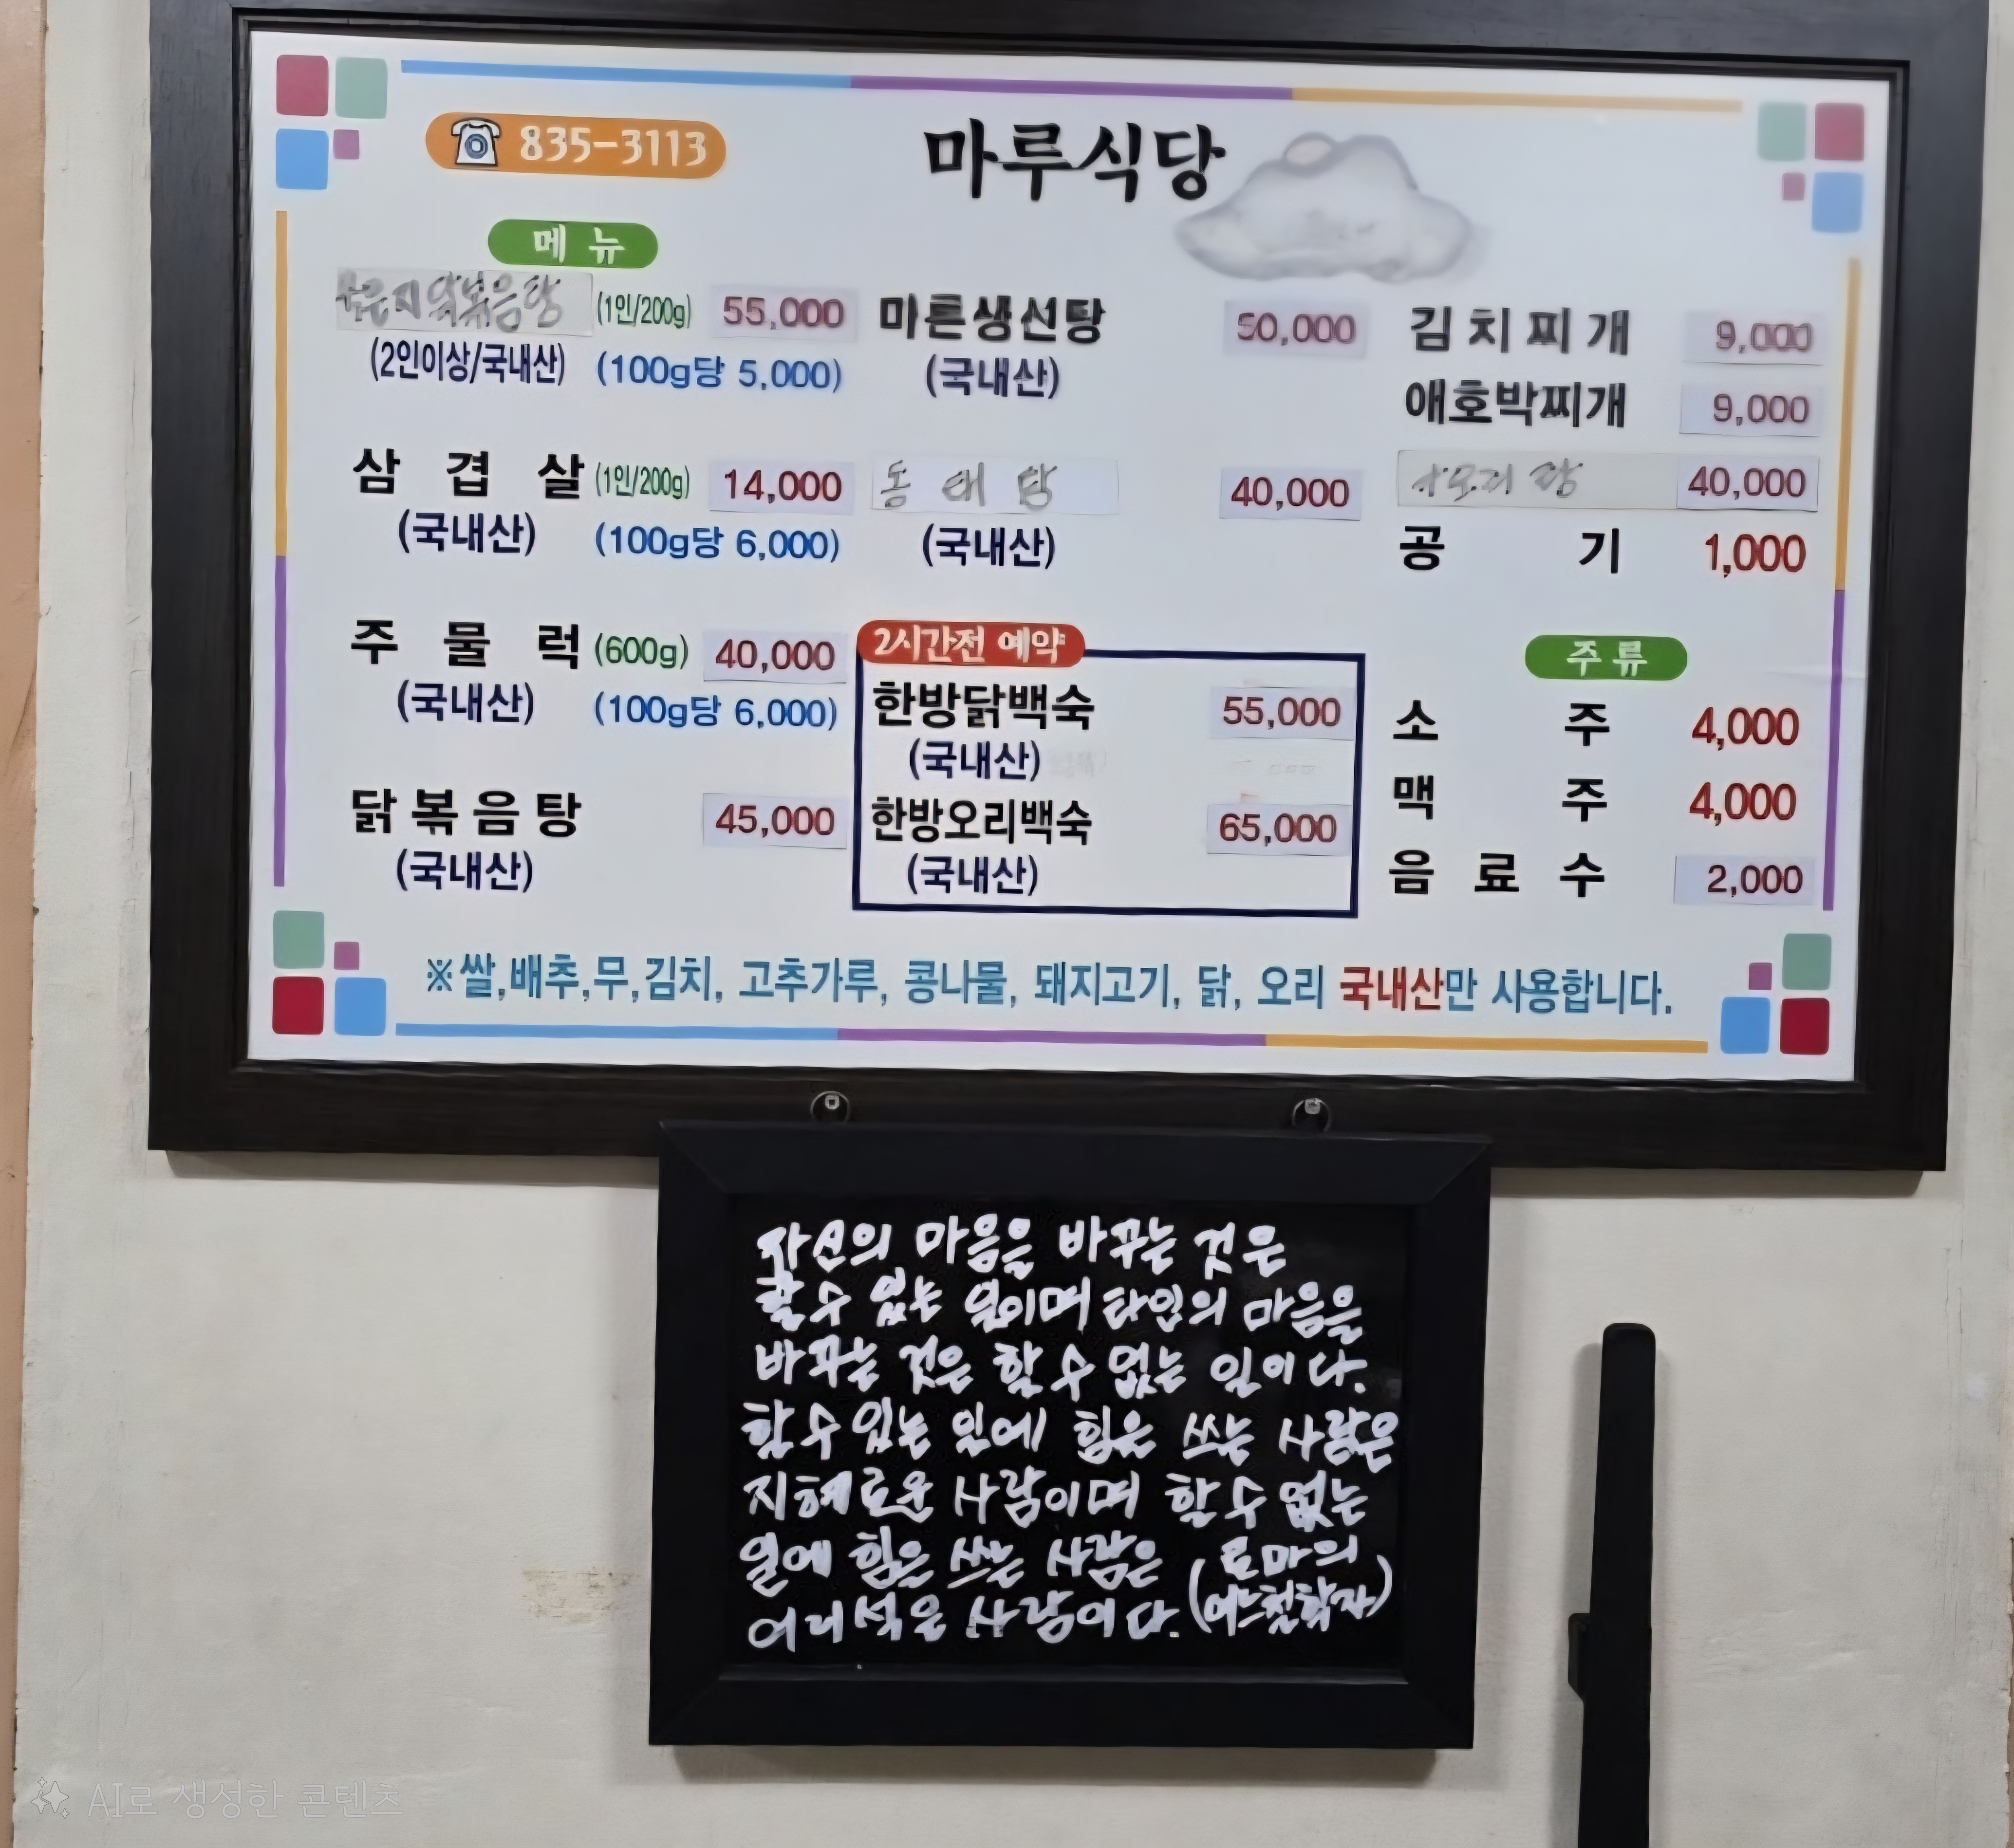 835-3113
마루식당
메 뉴
닭볶음탕 (1인/200g) 55,000
(2인이상/국내산) (100g당 5,000)
삼 겹 살 (1인/200g) 14,000
(국내산) (100g당 6,000)
주 물 럭 (600g) 40,000
(국내산) (100g당 6,000)
닭볶음탕 45,000
(국내산)
마른생선탕 50,000
(국내산)
동태탕 40,000
(국내산)
2시간전 예약
한방닭백숙 55,000
(국내산)
한방오리백숙 65,000
(국내산)
김치찌개 9,000
애호박찌개 9,000
40,000
공 기 1,000
주류
소 주 4,000
맥 주 4,000
음 료 수 2,000
※쌀,배추,무,김치, 고추가루, 콩나물, 돼지고기, 닭, 오리 국내산만 사용합니다.
자신의 마음을 바꾸는 것은
할수 있는 일이며 타인의 마음을
바꾸는 것은 할 수 없는 일이다.
할수있는 일에 힘은 쓰는 사람은
지혜로운 사람이며 할수 없는
일에 힘은 쓰는 사람은
어리석은 사람이다. (로마의
어느철학자)
AI로 생성한 콘텐츠